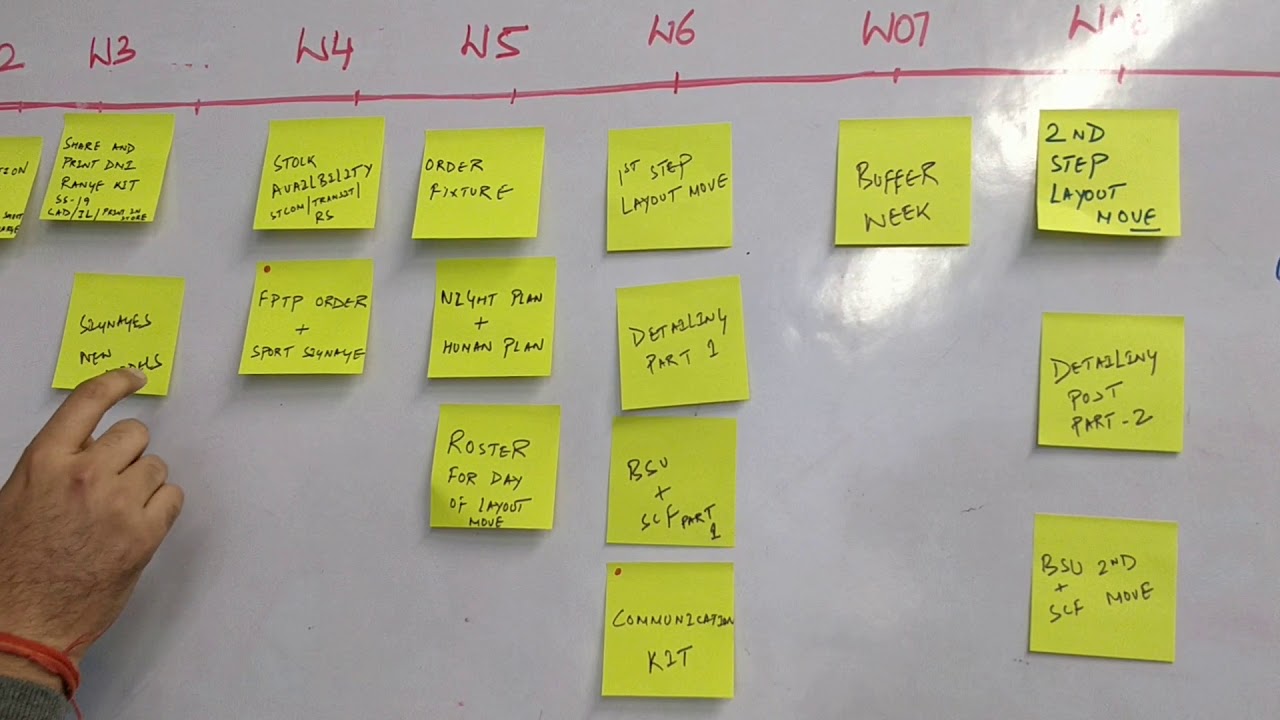 2
W3
...
W4
W5
W6
W07
TION
SHARE AND
PRINT DNI
RANGE KIT
SS-19
CAD/IL/PRINT IN
STORE
SIGNAGES
NEW
STOCK
AVAILBILITY
STCOM/TRANSIT/
RS
FPTP ORDER
+
SPORT SIGNAGE
ORDER
FIXTURE
NIGHT PLAN
+
HUMAN PLAN
ROSTER
FOR DAY
OF LAYOUT
MOVE
1ST STEP
LAYOUT MOVE
DETAILING
PART 1
BSU
+
SCF PART
1
COMMUNICATION
KIT
BUFFER
WEEK
2ND
STEP
LAYOUT
MOVE
DETAILING
POST
PART-2
BSU 2ND
+
SCF MOVE